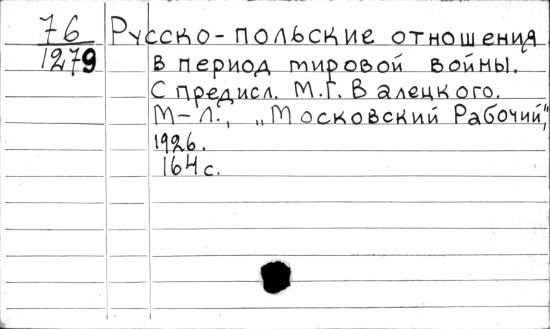 76 Русско-польские отношения
1279 в период мировой войны.
С предисл. М.Г. Валецкого.
М-Л., „Московский Рабочий",
1926.
164 с.